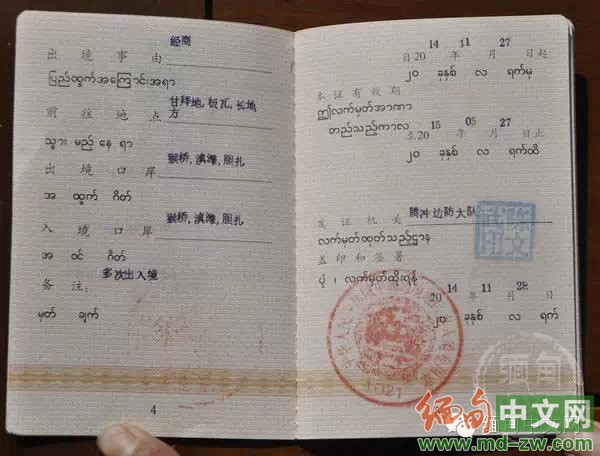 经商
出境事由
ပြည်ထွက်အကြောင်းအရာ
甘拜地,板瓦,长地方
前往地点
သွား မည့် နေ ရာ
猴桥,滇滩,胆扎
出境口岸
အ ထွက် ဂိတ်
猴桥,滇滩,胆扎
入境口岸
အ ဝင် ဂိတ်
多次出入境
备注:
မှတ် ချက်
4
14 11 27
自20 年 月 日起
၂၀ ခုနှစ် လ ရက်မှ
本证有效期
ဤလက်မှတ်အာဏာ
တည်သည့်ကာလ
15 05 27
至20 年 月 日止
၂၀ ခုနှစ် လ ရက်ထိ
腾冲边防大队
发证机关
လက်မှတ်ထုတ်သည့်ဌာန
盖印和签署
ပုံ ၊ လက်မှတ်ထိုးရန်
14 11 28
20 年 月 日
၂၀ ခုနှစ် လ ရက်
1021
缅甸
缅甸中文网
www.md-zw.com